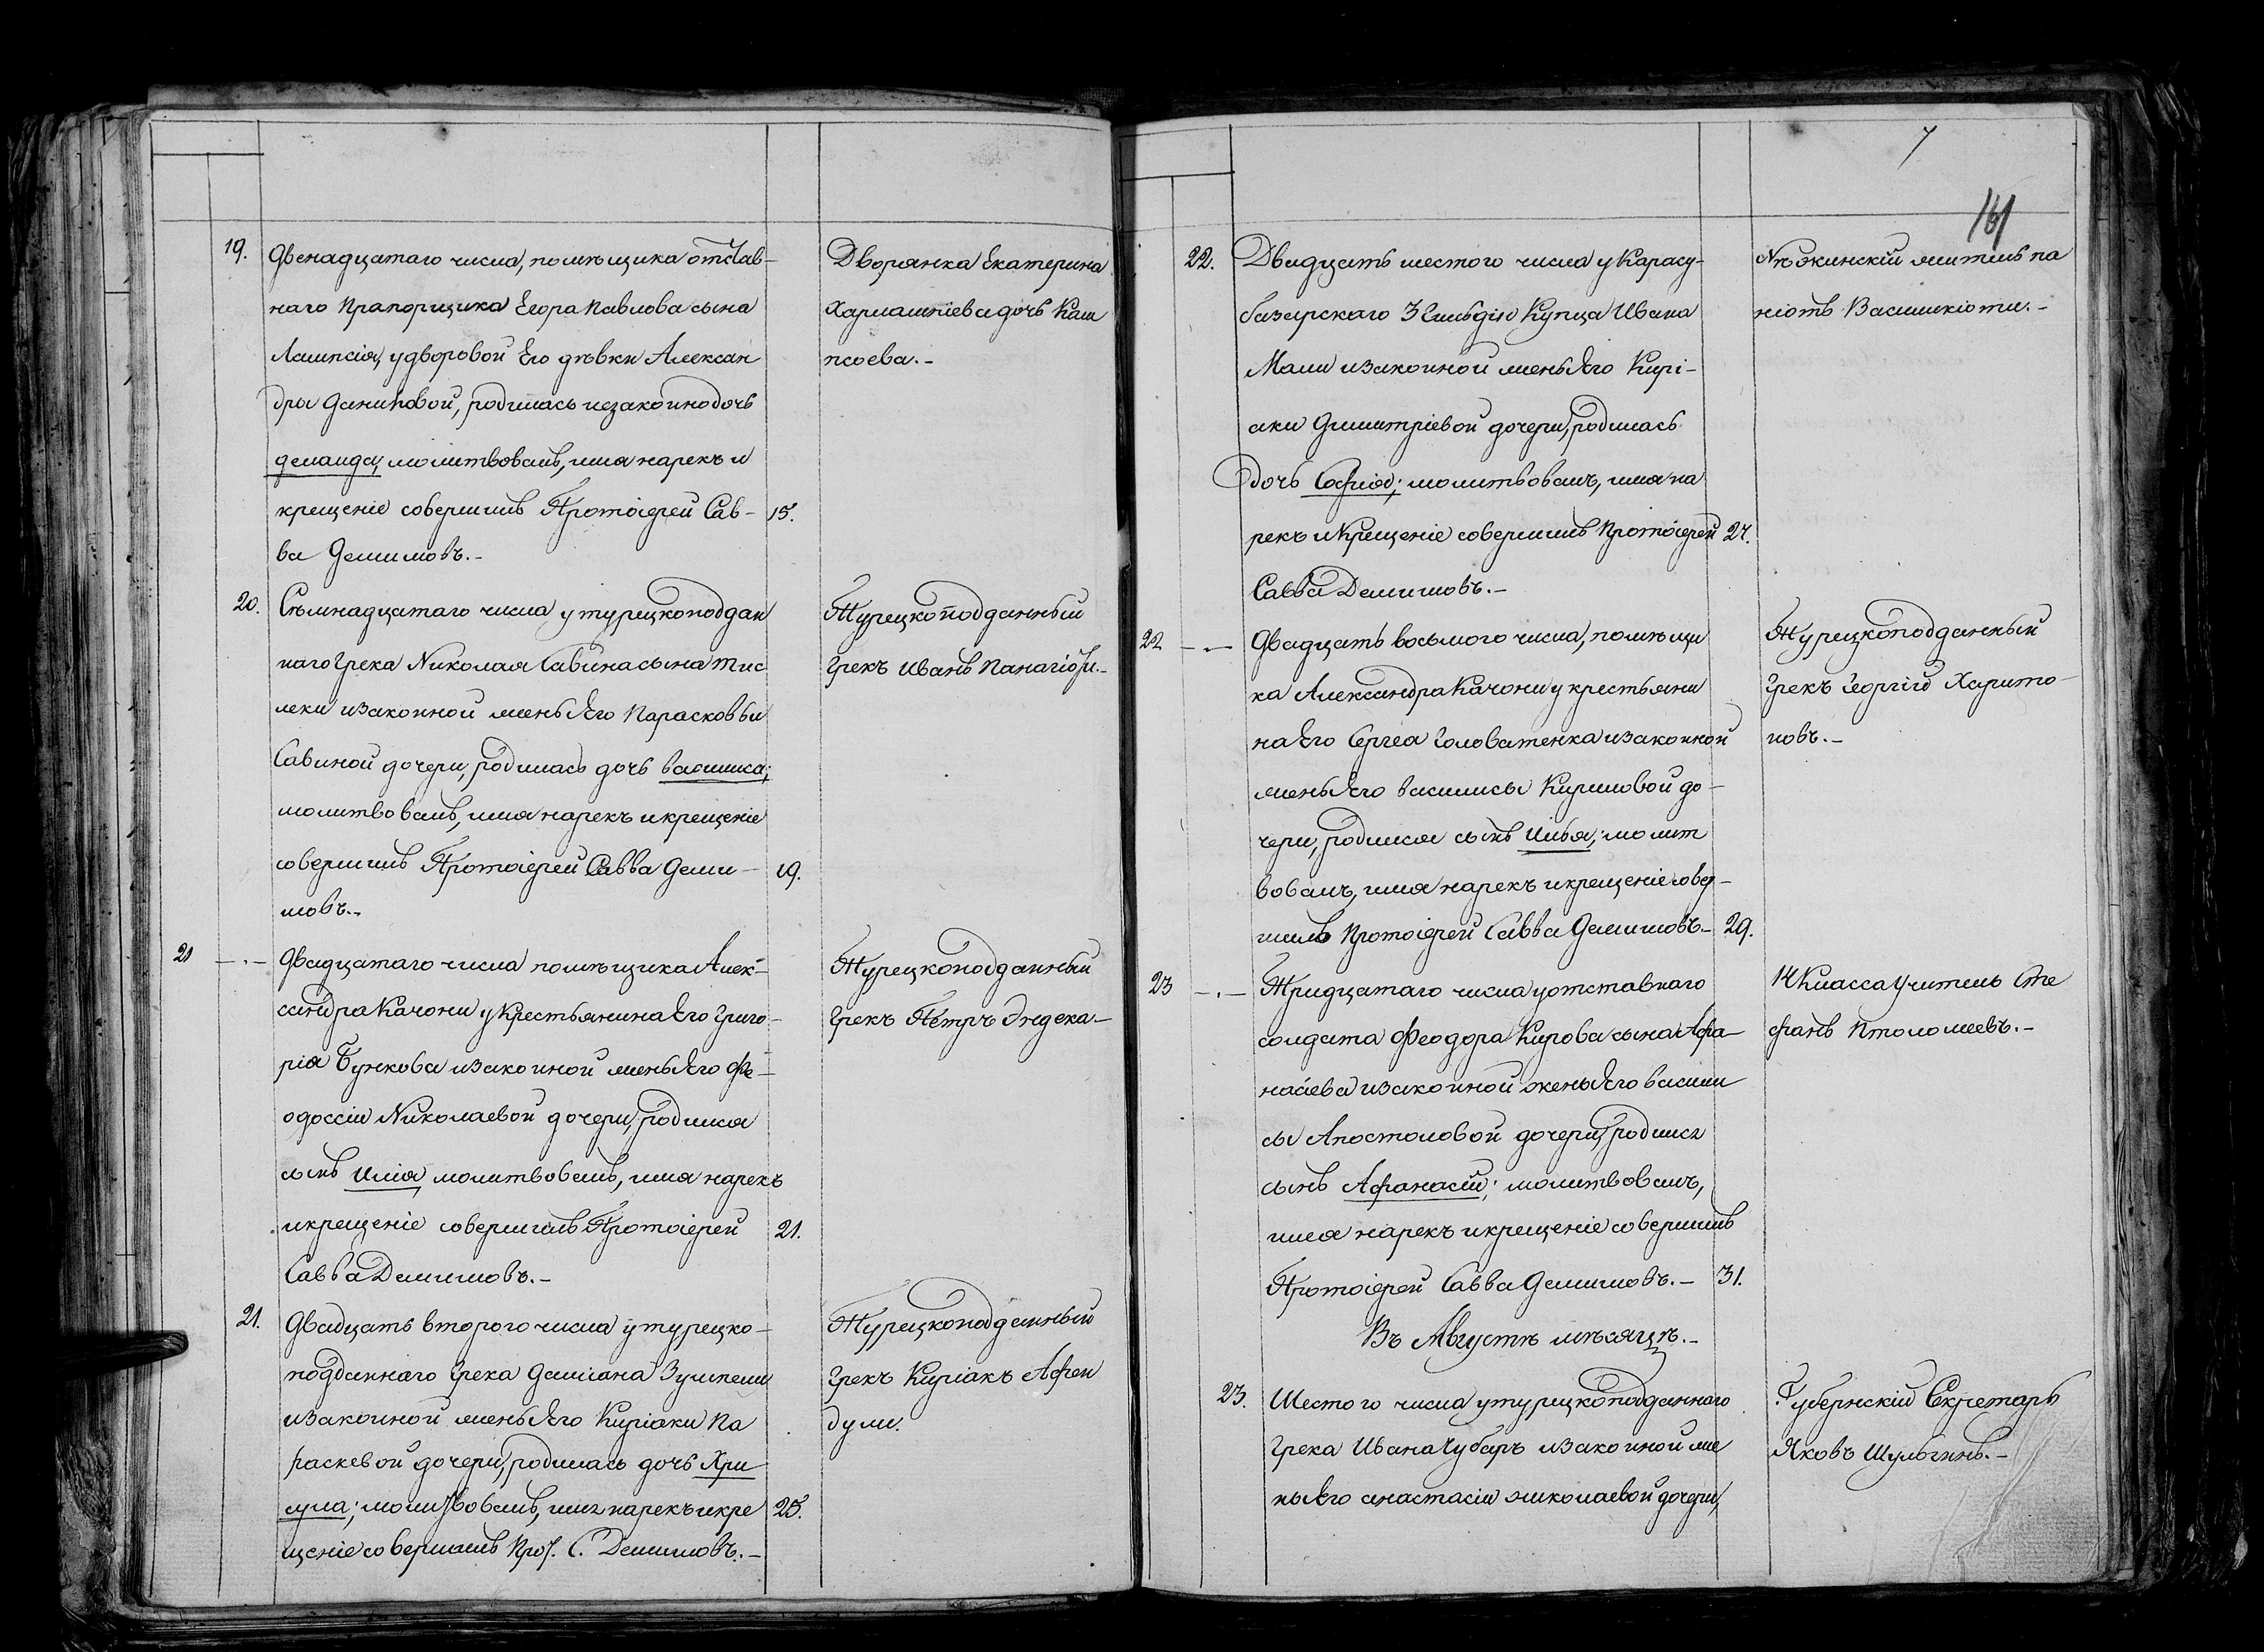 19. Двенадцатаго числа, помѣщика отстав-
наго Прапорщика Егора Павлова сына
у дворовой Его дѣвки Алексан
дры родилась незаконно дочь
молитвовалъ, имя нарекъ и
крещеніе совершилъ Протоіерей Сав- 15.
ва Демишовъ.-
Дворянка Екатерина
дочь Кам
псоева.-
20. Сѣмнадцатаго числа у турецкоподдан
наго Грека Николая Савина сына Тис
леки и законной жены Его Парасковьи
Савиной дочери, родилась дочь Василика;
молитвовалъ, имя нарекъ и крещеніе
совершилъ Протоіерей Савва Деми- 19.
шовъ.-
Турецкоподданный
Грекъ Иванъ
21 -.- Двадцатаго числа помѣщика Алек-
сандра Качони у Крестьянина Его Григо-
рія Бункова и законной жены Его Фе-
одоссіи Николаевой дочери, родился
сынъ Илія, молитвовалъ, имя нарекъ
и крещеніе совершилъ Протоіерей 21.
Савва Демишовъ.-
Турецкоподданный
Грекъ Петръ Эндека-
21. Двадцать второго числа у турецко-
подданнаго Грека Даміана
и законной жены Его Киріаки Па
раскевой дочери, родилась дочь Хри
сула; молитвовалъ, имя нарекъ и кре 25.
щеніе совершилъ Прот. С. Демишовъ.-
Турецкоподданный
Грекъ Киріакъ Афен
дули.
7
161
22. Двадцать шестого числа у Карасу-
базарскаго 3 Гильдіи Купца Ивана
Мали и законной жены Его Кирі-
аки Димитріевой дочери, родилась
дочь Софія; молитвовалъ, имя на
рекъ и Крещеніе совершилъ Протоіерей 27.
Савва Демишовъ.-
Нѣжинскій житель Па
ніотъ Василикіоти.-
22 -.- Двадцать восьмого числа, помѣщи
ка Александра Качони у крестьяни
на Его Сергея Головатенка и законной
жены Его Василисы Кириловой до-
чери, родился сынъ Илья; молит
вовалъ, имя нарекъ и крещеніе совер-
шилъ Протоіерей Савва Демишовъ.- 29.
Турецкоподданный
Грекъ Георгій Харито-
новъ.-
23 -.- Тридцатаго числа у отставнаго
солдата Феодора Кирова сына Афа-
насіева и законной жены Его Васили
сы Апостоловой дочери, родился
сынъ Афанасій; молитвовалъ,
имя нарекъ и крещеніе совершилъ
Протоіерей Савва Демишовъ.- 31.
14 Класса Учитель Сте
фанъ Птоломеевъ.-
Въ Августѣ мѣсяцѣ.-
23. Шестого числа у турецкоподданнаго
Грека Ивана Чубаръ и законной же
ны Его Анастасіи Николаевой дочери,
Губернскій Секретарь
Яковъ Шульгинъ.-